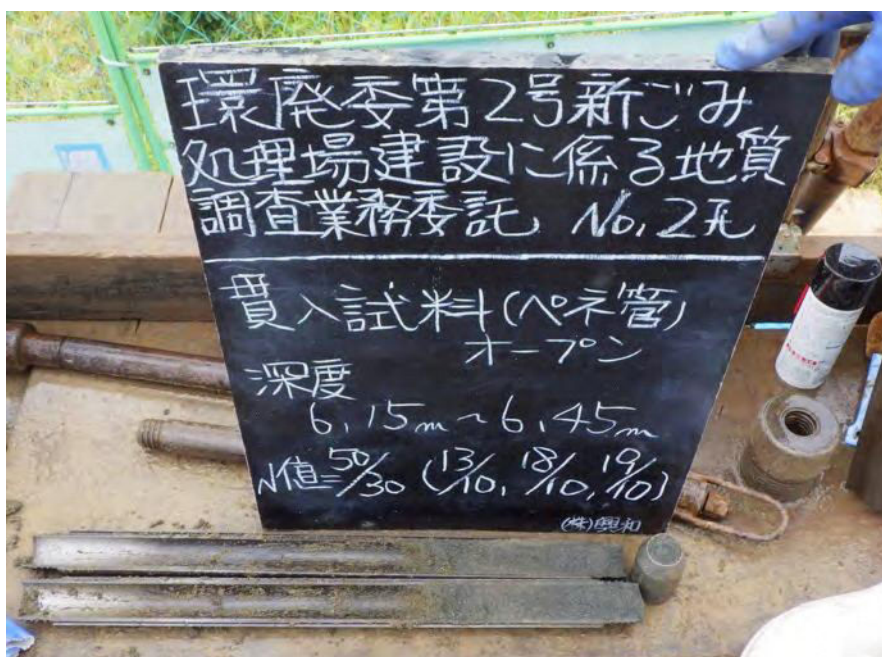 環廃委第2号新ごみ
処理場建設に係る地質
調査業務委託 No,2孔
貫入試料(ペネ管)
オープン
深度
6,15m~6,45m
N値=50/30 (13/10, 18/10, 19/10)
(株)興和